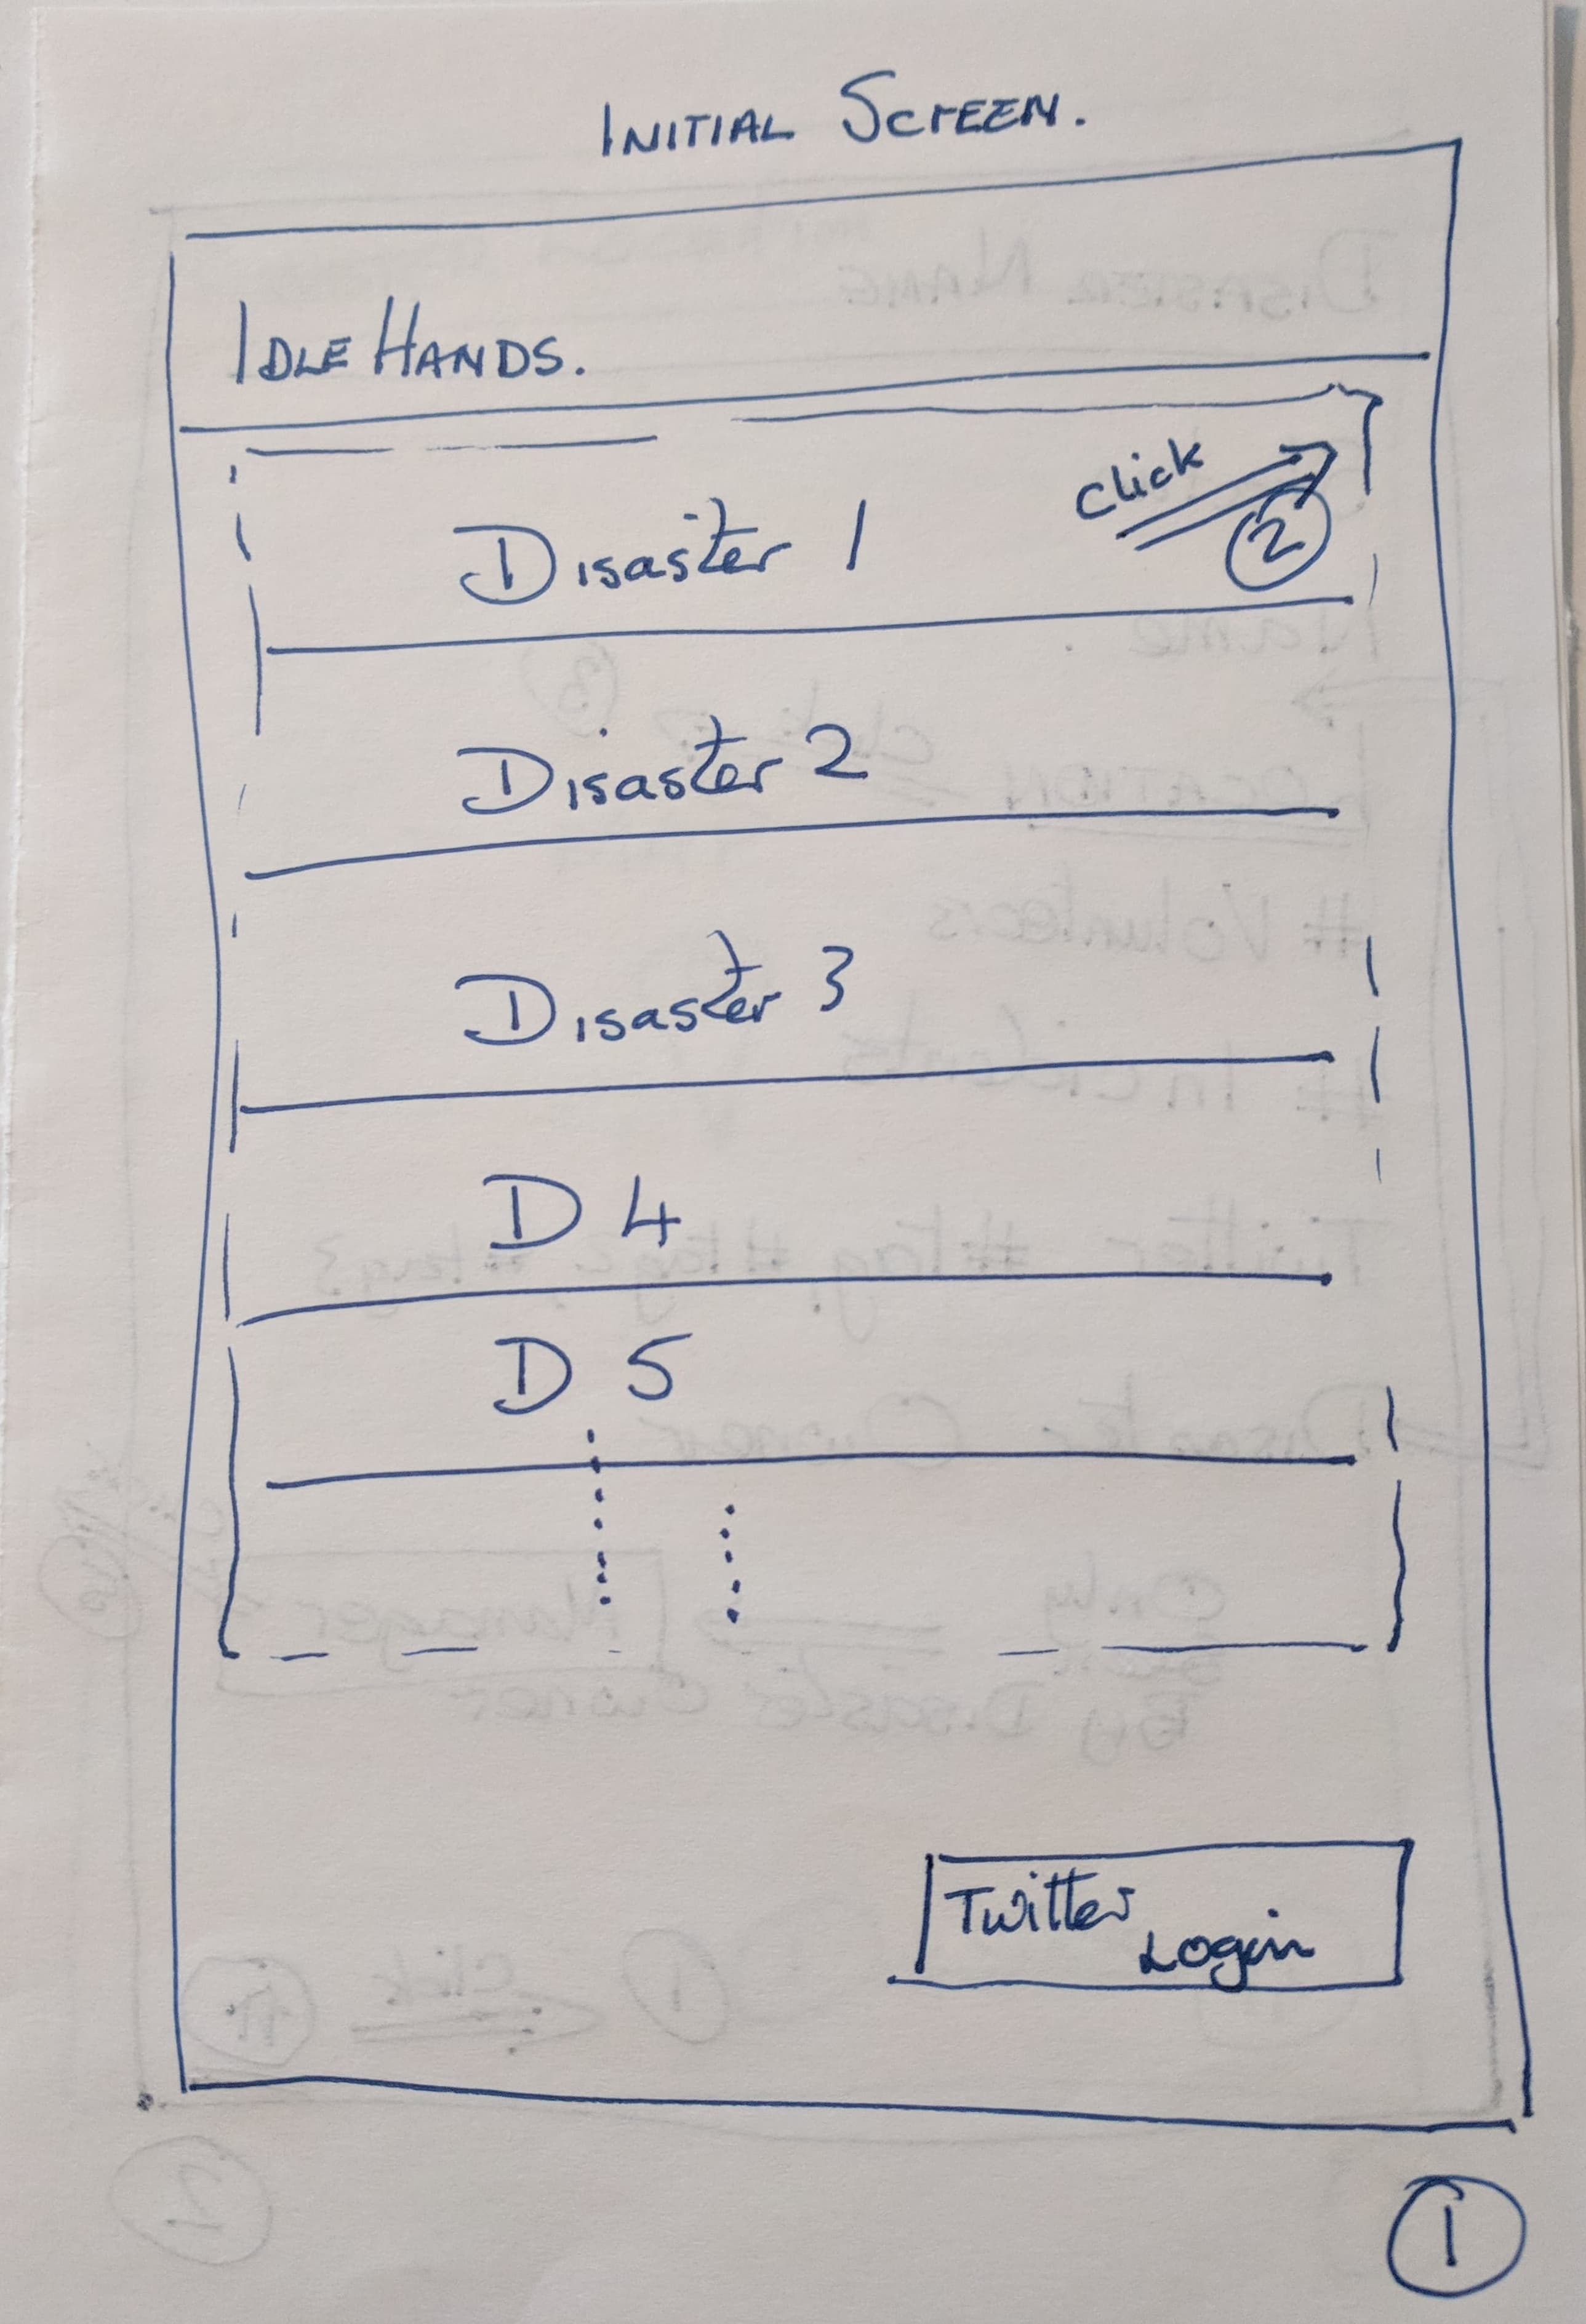 INITIAL SCREEN.
IDLE HANDS.
Click
Disaster 1
2
Disaster 2
Disaster 3
D 4
D 5
Twitter
Login
1